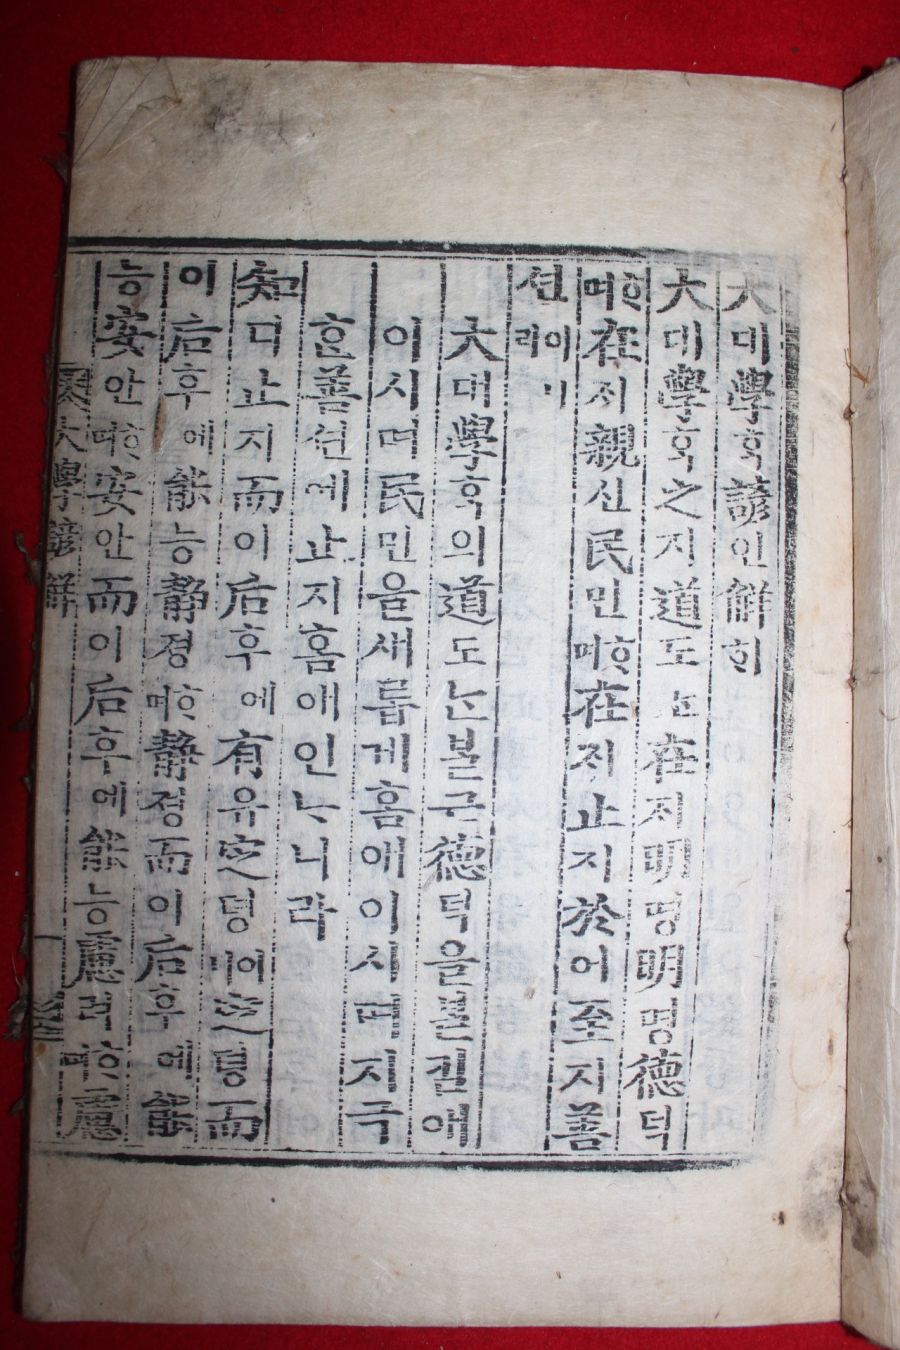 大대學ᄒᆞᆨ諺언解ᄒᆡ
大대學ᄒᆞᆨ之지道도ᄂᆞᆫ在ᄌᆡ明명明명德덕
ᄒᆞ며在ᄌᆡ親신民민ᄒᆞ며在ᄌᆡ止지於어至지善
션이니라
大대學ᄒᆞᆨ의道도ᄂᆞᆫᄇᆞᆯ근德덕을ᄇᆞᆯ김애
이시며民민을새롭게홈애이시며지극
ᄒᆞᆫ善션에止지홈애인ᄂᆞ니라
知디止지而이后후에有유定뎡이니定뎡而
이后후에能능靜졍ᄒᆞ며靜졍而이后후에能
능安안ᄒᆞ며安안而이后후에能능慮려ᄒᆞ며慮
大學諺解 一